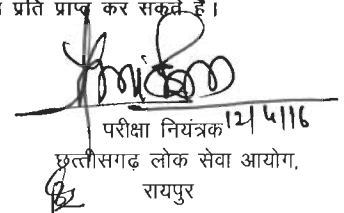 प्रति प्राप्त कर सकते हैं।
परीक्षा नियंत्रक 12/4/16
छत्तीसगढ़ लोक सेवा आयोग,
रायपुर